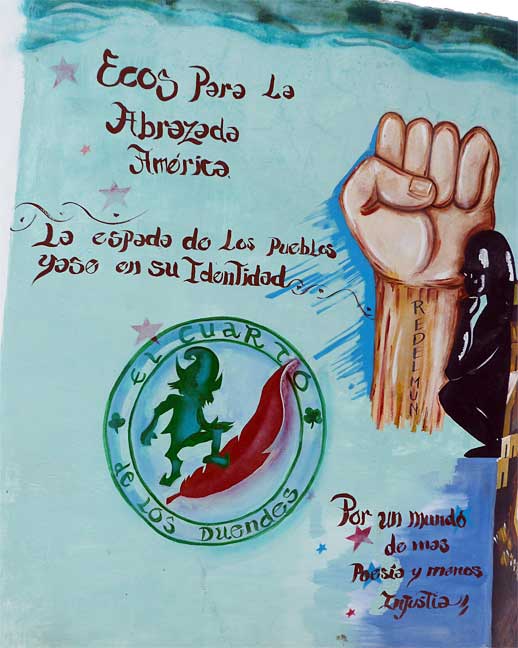 Ecos Para La
Abrazada
América.
La espada de los pueblos
yase en su Identidad
REDELMUN
EL CUARTO
de LOS DUENDES
Por un mundo
de mas
Poesía y menos
Injustia